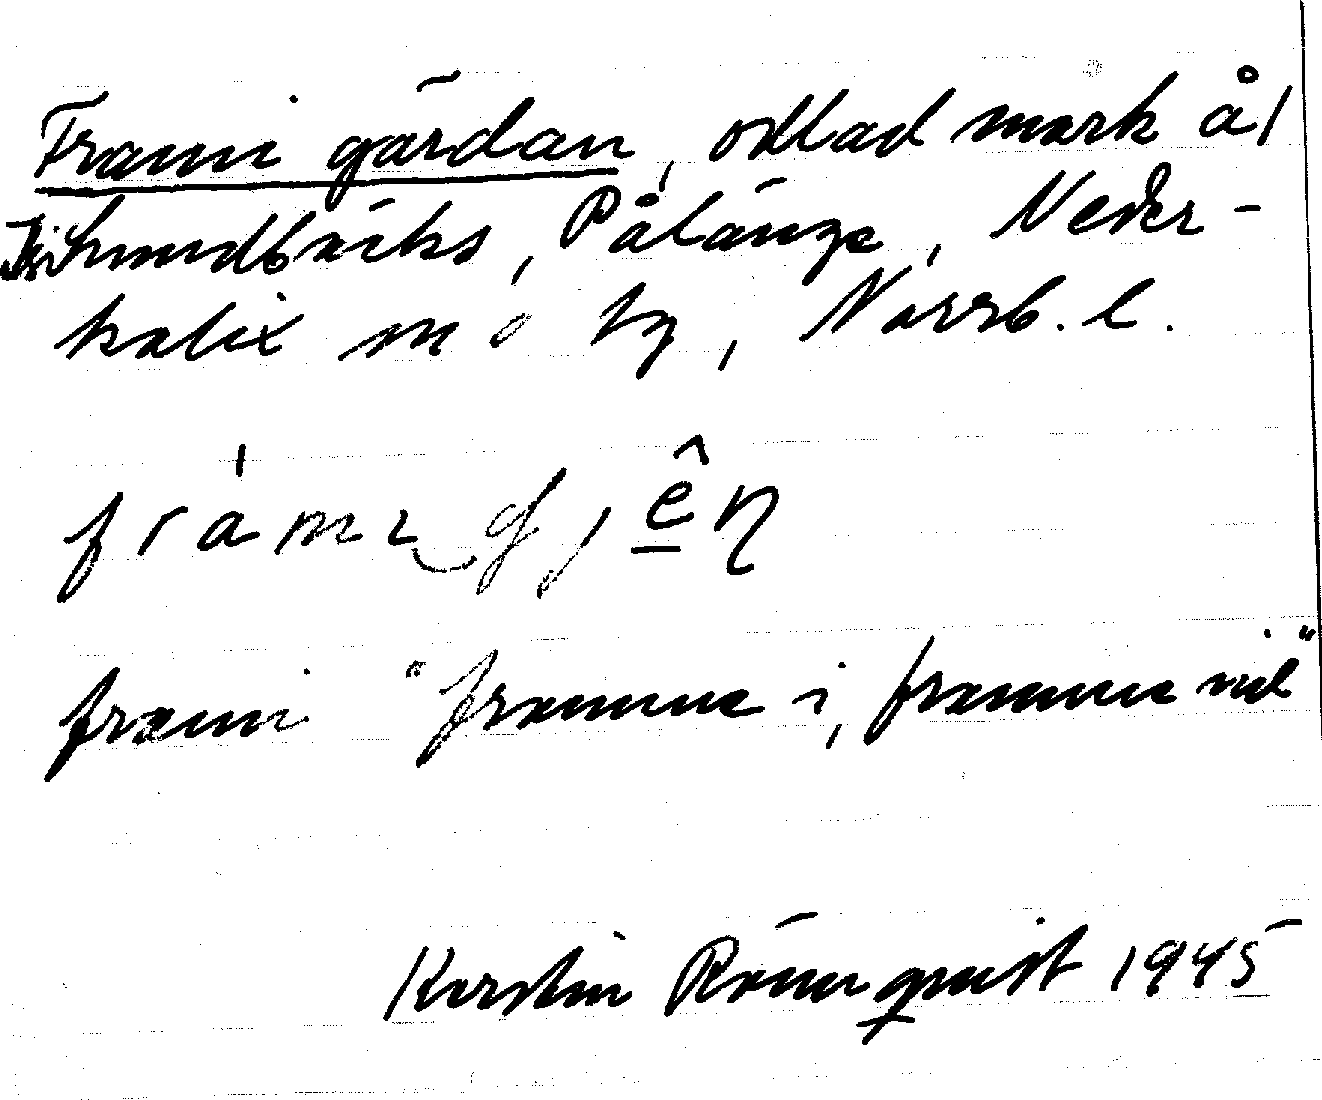 Frami gärdan, odlad mark å
Smedbäcks, Pålänge, Neder-
kalix sn o by, Norrb. l.
frámı gjên
frami "framme i, framme vid"
Kerstin Rönnquist 1945